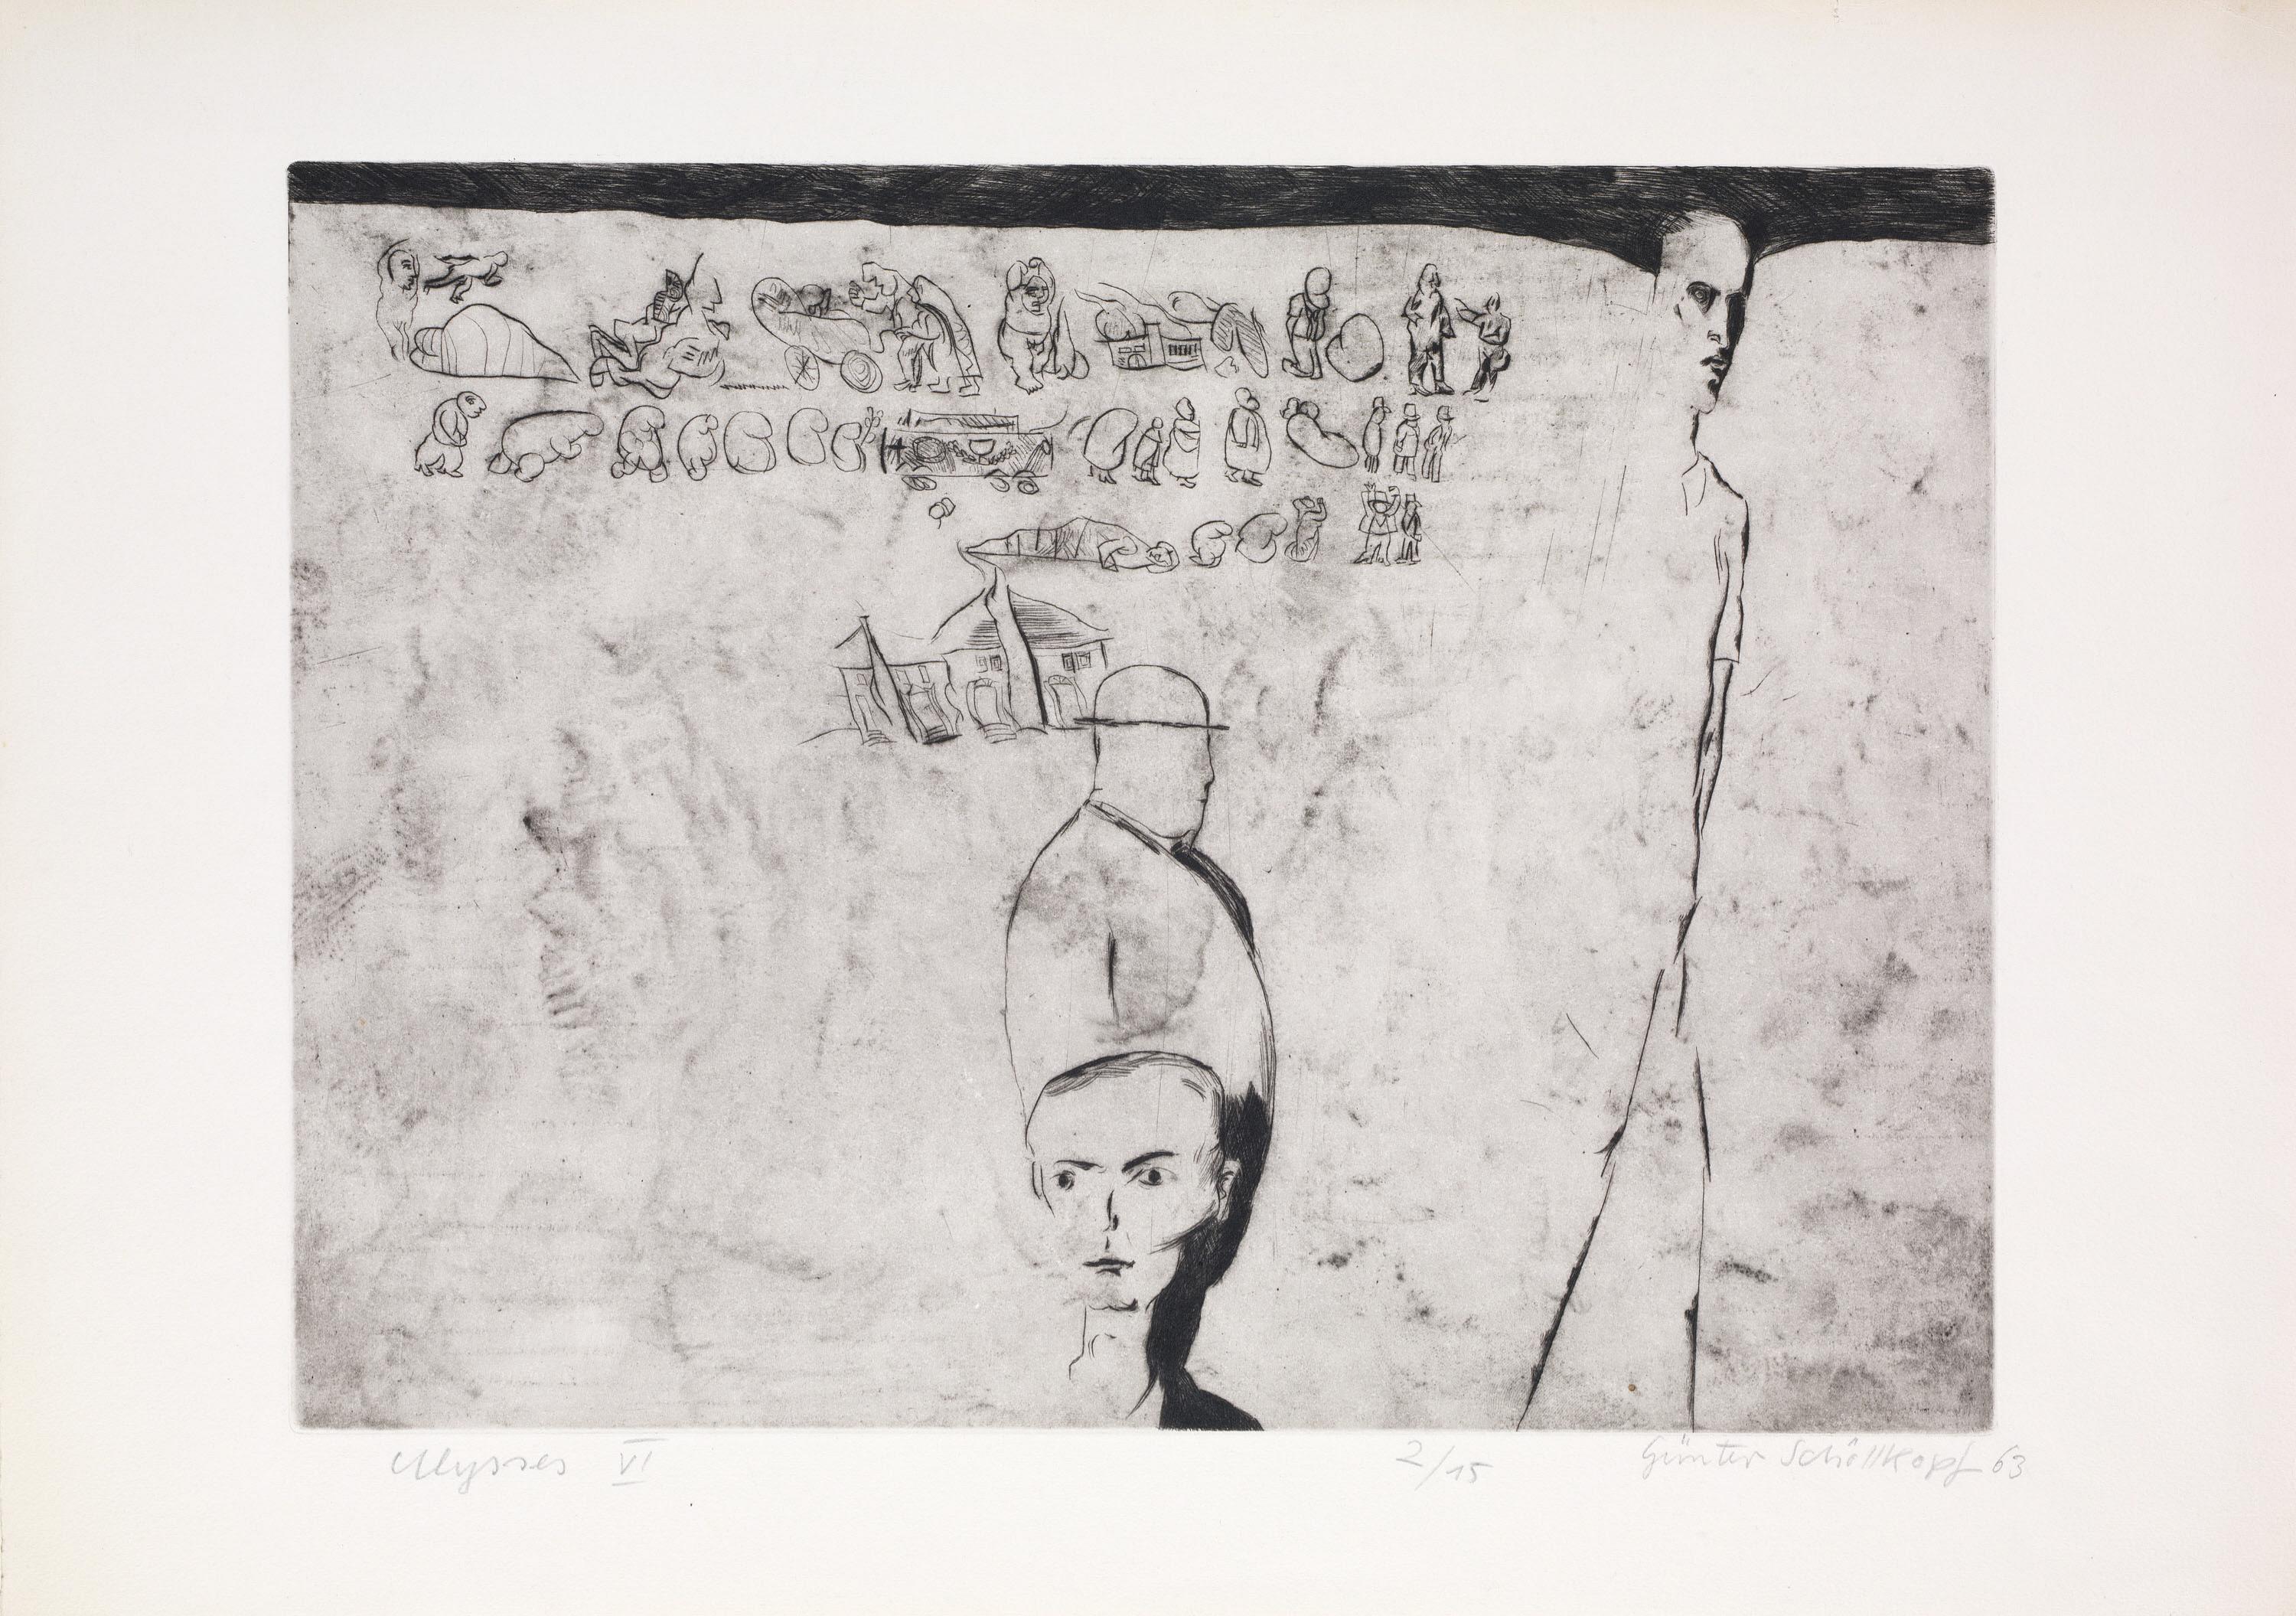 Ulysses VI 2/15 Günter Schöllkopf 63